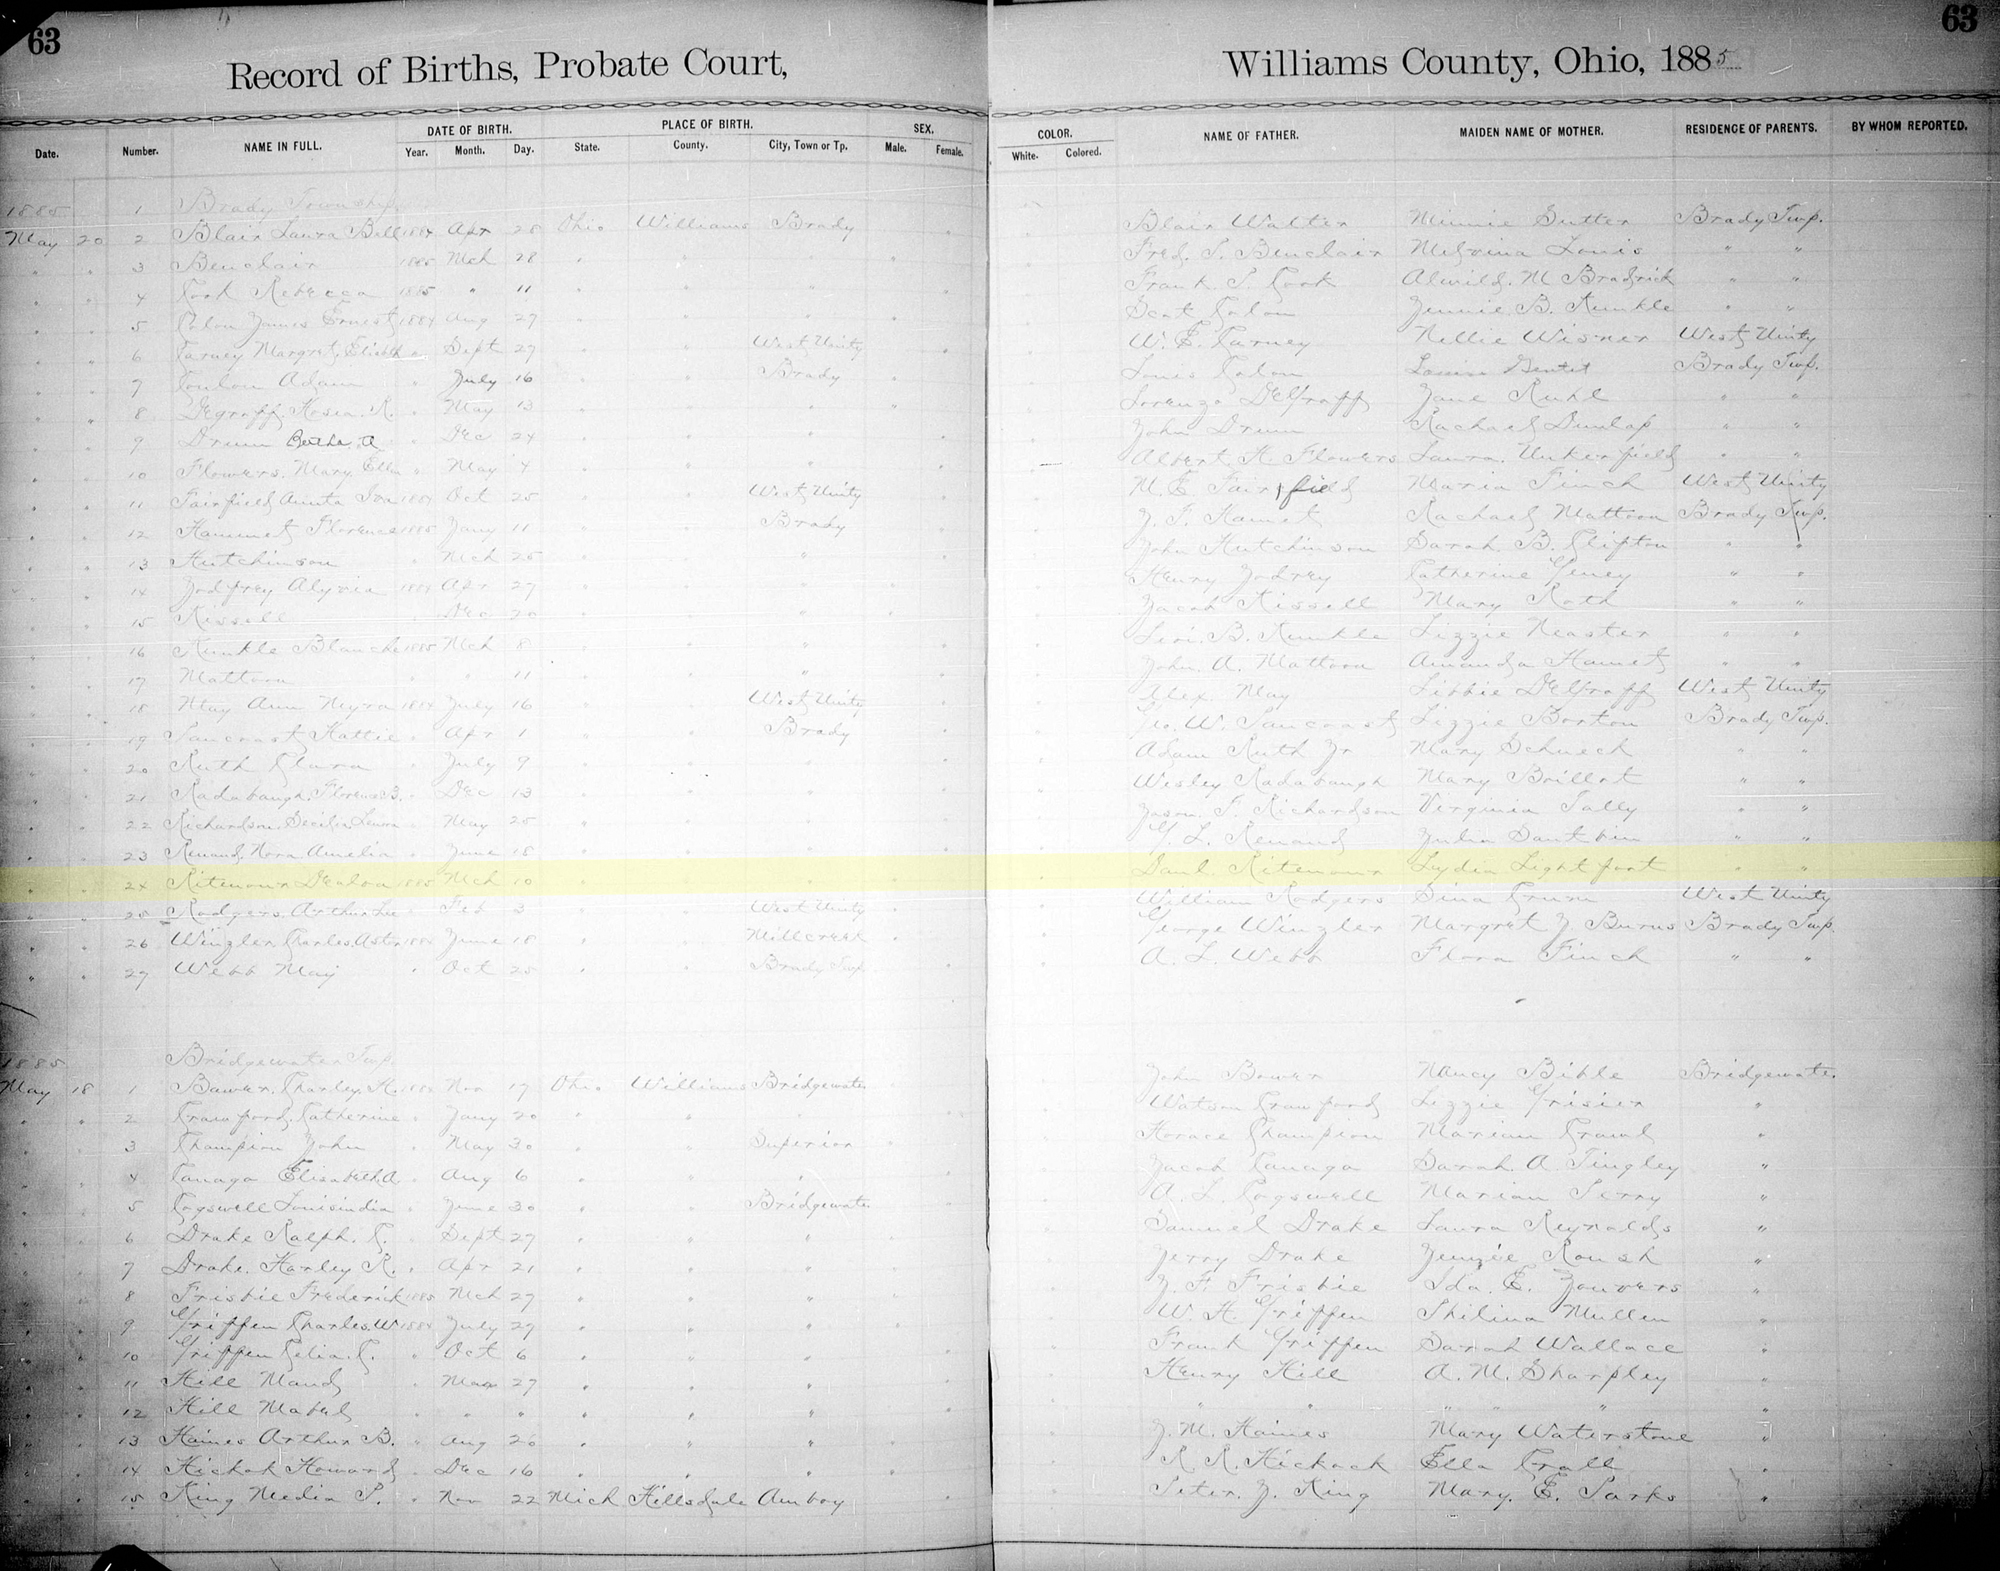 63 63
Record of Births, Probate Court, Williams County, Ohio, 1885
Date. Number. NAME IN FULL. DATE OF BIRTH. Year. Month. Day. PLACE OF BIRTH. State. County. City, Town or Tp. SEX. Male. Female. COLOR. White. Colored. NAME OF FATHER. MAIDEN NAME OF MOTHER. RESIDENCE OF PARENTS. BY WHOM REPORTED.
1885 1 Brady Township
May 20 2 Blair Laura Bell 1884 Apr 28 Ohio Williams Brady Blair Walter Minnie Sutter Brady Twp.
" " 3 Benclair 1885 Mch 28 " " " Fred. S. Benclair Melvina Louis " "
" " 4 Cook Rebecca 1885 " 11 " " " Frank. S. Cook M Bradrick " "
" " 5 Colon James Ernest 1884 Aug 27 " " " Scot Colon Jennie B. Kunkle " "
" " 6 Carney Margret Elisbth " Sept 27 " " West Unity W. E. Carney Nellie Wisner West Unity
" " 7 Coulon Adam " July 16 " " Brady Louis Colon Louisa Brady Twp.
" " 8 Degroff. Hosea. R. " May 13 " " " Lorenzo DeGroff Jane Ruhl " "
" " 9 Drum Bertha. A " Dec 24 " " " John Drum Rachael Dunlap " "
" " 10 Flowers. Mary. Ellen " May 4 " " " Albert. H. Flowers Laura. Unkerfield " "
" " 11 Fairfield Ira 1884 Oct 25 " " West Unity M. E Fairfield Maria Finch West Unity
" " 12 Hammet Florence 1885 Jany 11 " " Brady J. T. Hamet Rachael Mattoon Brady Twp.
" " 13 Hutchinson " Mch 25 " " " John Hutchinson Sarah. B. Clifton " "
" " 14 Jodfrey 1884 Apr 27 " " " Henry Jodrey Catherine " "
" " 15 Kissell " Dec 20 " " " Jacob Kissell Mary Roth " "
" " 16 Kunkle Blanche 1885 Mch 8 " " " Levi. B. Kunkle Lizzie Neaster " "
" " 17 Mattoon " " 11 " " " John. A. Mattoon Amanda Hamet " "
" " 18 May Ann Myra 1884 July 16 " " West Unity Alex. May Libbie DeGroff West Unity
" " 19 Pancrast Hattie " Apr 1 " " Brady Geo. W. Pancrast Lizzie Borton Brady Twp.
" " 20 Ruth Clara " July 9 " " " Adam Ruth Jr Mary Schnech " "
" " 21 Radabaugh. Florence B. " Dec 13 " " " Wesley Radabaugh Mary Brillat " "
" " 22 Richardson Cecilia Leuora " May 25 " " " Jason. T. Richardson Virginia Tally " "
" " 23 Renaud. Nora Amelia " June 18 " " " G. L. Renaud Julia " "
" " 24 Ritenour 1885 Mch 10 " " " Danl. Ritenour Lydia Lightfort " "
" " 25 Rodgers. Arthur Lee " Feb 3 " " West Unity William Rodgers Dina Crum West Unity
" " 26 Wingler Charles. 1884 June 18 " " Millcreek George Wingler Margret J Burns Brady Twp.
" " 27 Webb May " Oct 25 " " Brady Twp A. L. Webb Flora Finch " "
1885 Bridgewater Twp.
May 18 1 Bawer. Charley. H. 1884 Nov 17 Ohio Williams Bridgewater John Bower Nancy Bible Bridgewater.
" " 2 Crawford. Catherine " Jany 20 " " " Watson Crawford Lizzie Grisier "
" " 3 Champion John " May 30 " " Superior Horace Champion Marian "
" " 4 Canaga Elisabeth. A " Aug 6 " " " Jacob Canaga Sarah. A. Tingley "
" " 5 Cogswell Louisindia " June 30 " " Bridgewater A. L. Cogswell Marian Perry "
" " 6 Drake Ralph. C. " Sept 27 " " " Samuel Drake Laura Reynolds "
" " 7 Drake. Harley R. " Apr 21 " " " Jerry Drake Roush "
" " 8 Frisbie Frederick 1885 Mch 27 " " " J. F. Frisbie Ida. E. Youvers "
" " 9 Griffen Charles. W 1884 July 29 " " " W. H. Griffen Philina Mullen "
" " 10 Griffen Celia. C. " Oct 6 " " " Frank Griffen Sarah Wallace "
" " 11 Hill Maud " Mar 27 " " " Henry Hill A. M. Sharpley "
" " 12 Hill Mabel " " " " " " " " " " "
" " 13 Haines Arthur B. " Aug 26 " " " J. M. Haines Mary Waterstone "
" " 14 Hickok Howard " Dec 16 " " " R R. Hickock Ella Crall "
" " 15 King Media P. " Nov 22 Mich Hillsdale Amboy Peter. J. King Mary. E. Parks "